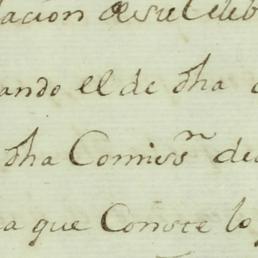 lacion desde el Celeb
ando el de dha
dha Comiss.n de
a que Conste lo